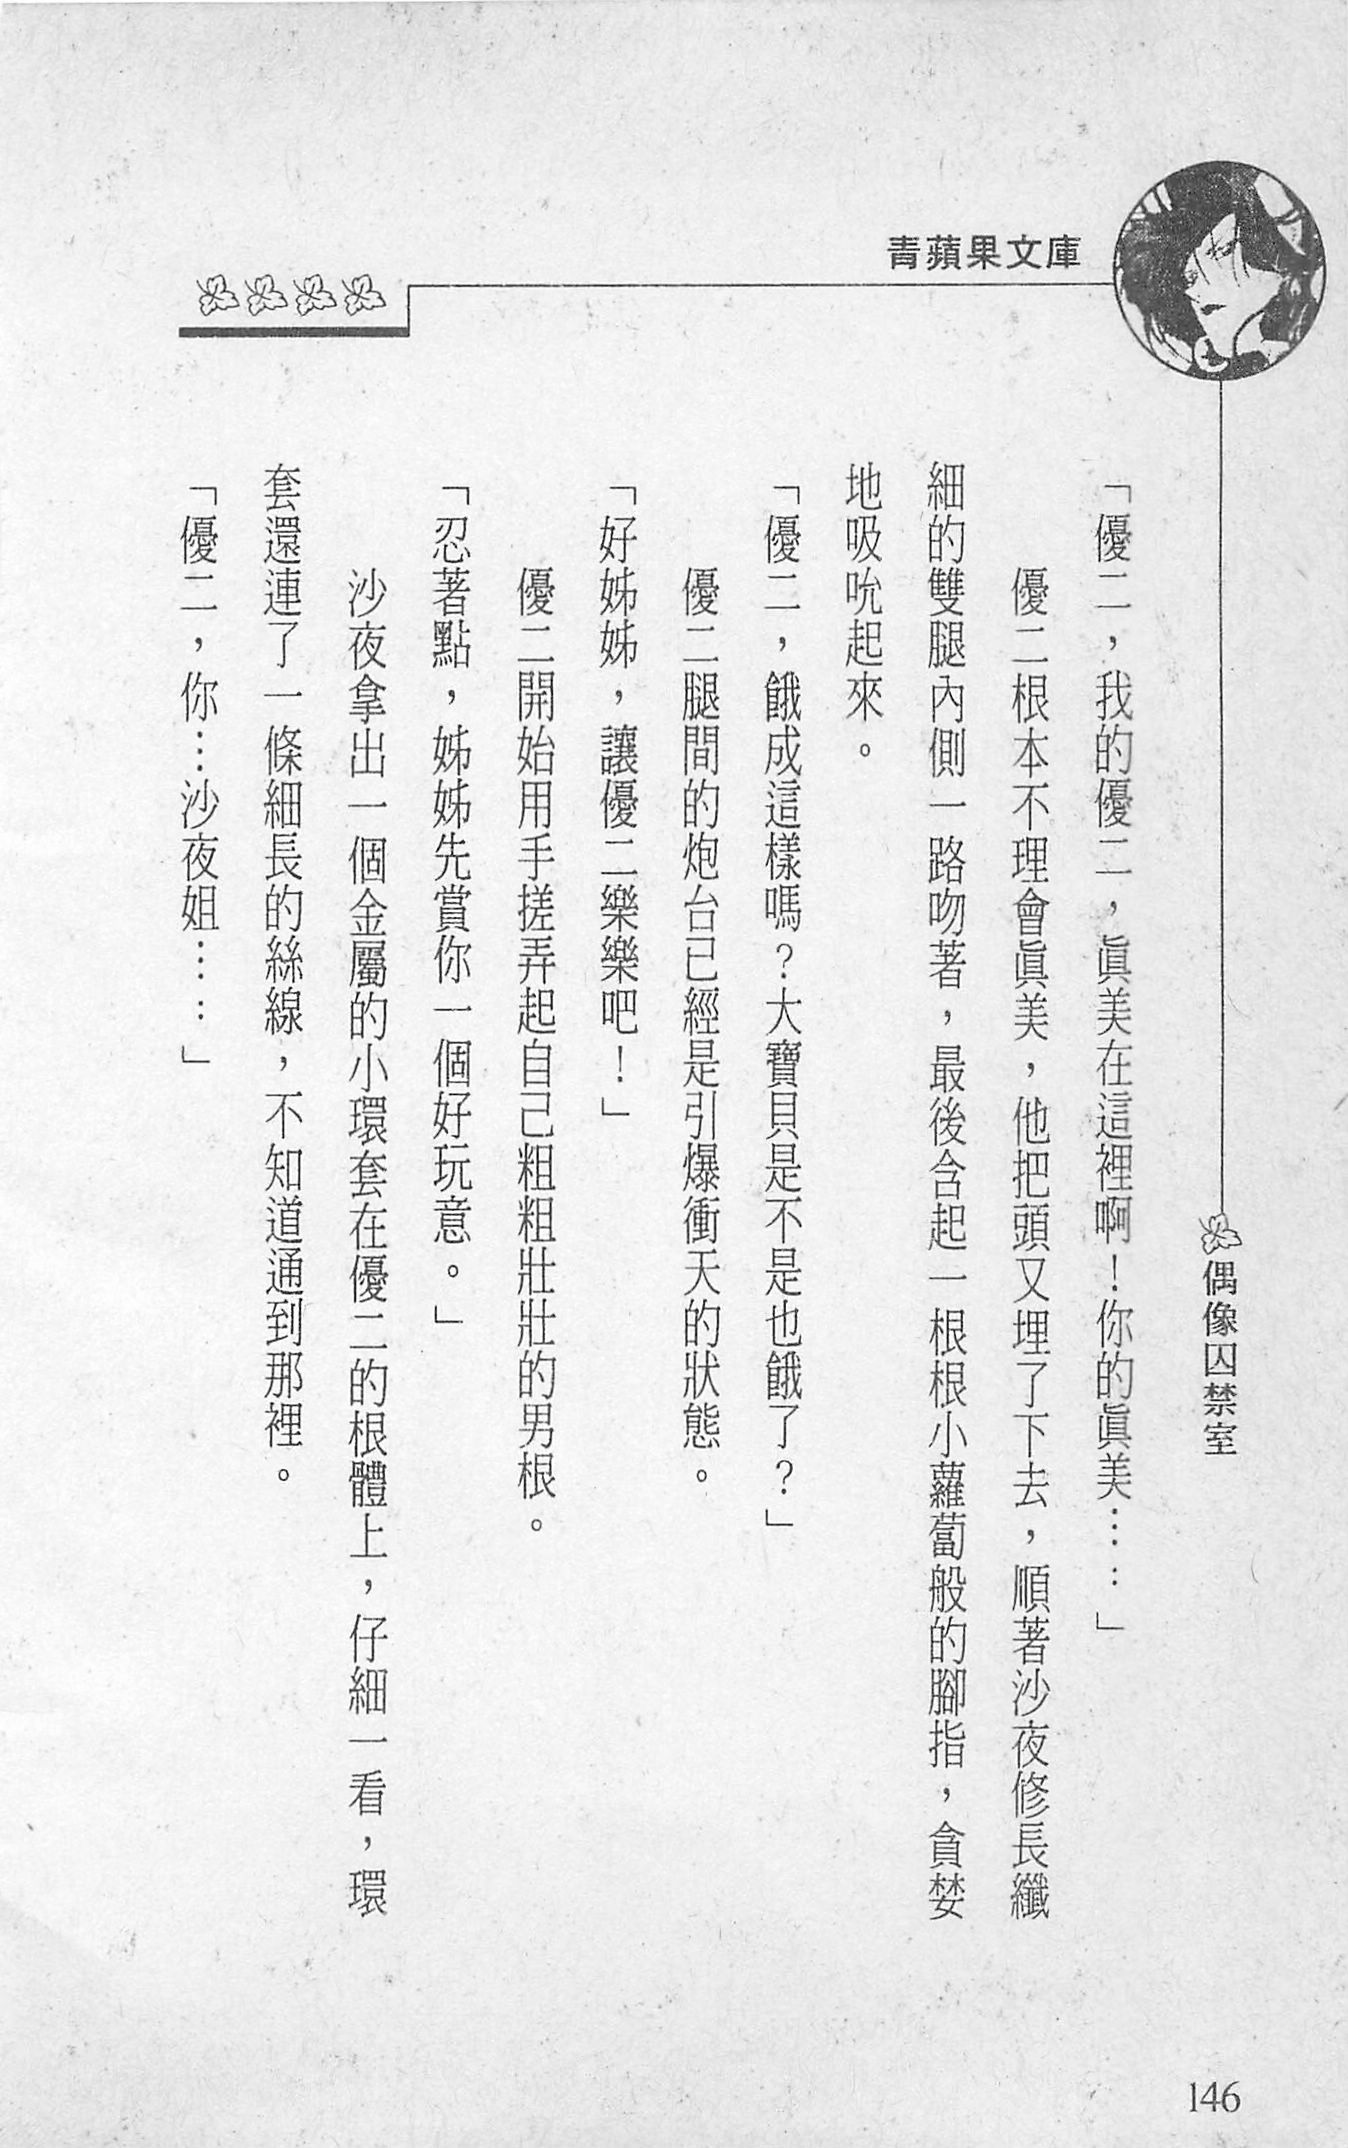 青蘋果文庫
偶像囚禁室
「優二，我的優二，眞美在這裡啊！你的眞美……」
優二根本不理會眞美，他把頭又埋了下去，順著沙夜修長纖
細的雙腿內側一路吻著，最後含起一根根小蘿蔔般的腳指，貪婪
地吸吮起來。
「優二，餓成這樣嗎？大寶貝是不是也餓了？」
優二腿間的炮台已經是引爆衝天的狀態。
「好姊姊，讓優二樂樂吧！」
優二開始用手搓弄起自己粗粗壯壯的男根。
「忍著點，姊姊先賞你一個好玩意。」
沙夜拿出一個金屬的小環套在優二的根體上，仔細一看，環
套還連了一條細長的絲線，不知道通到那裡。
「優二，你…沙夜姐……」
146